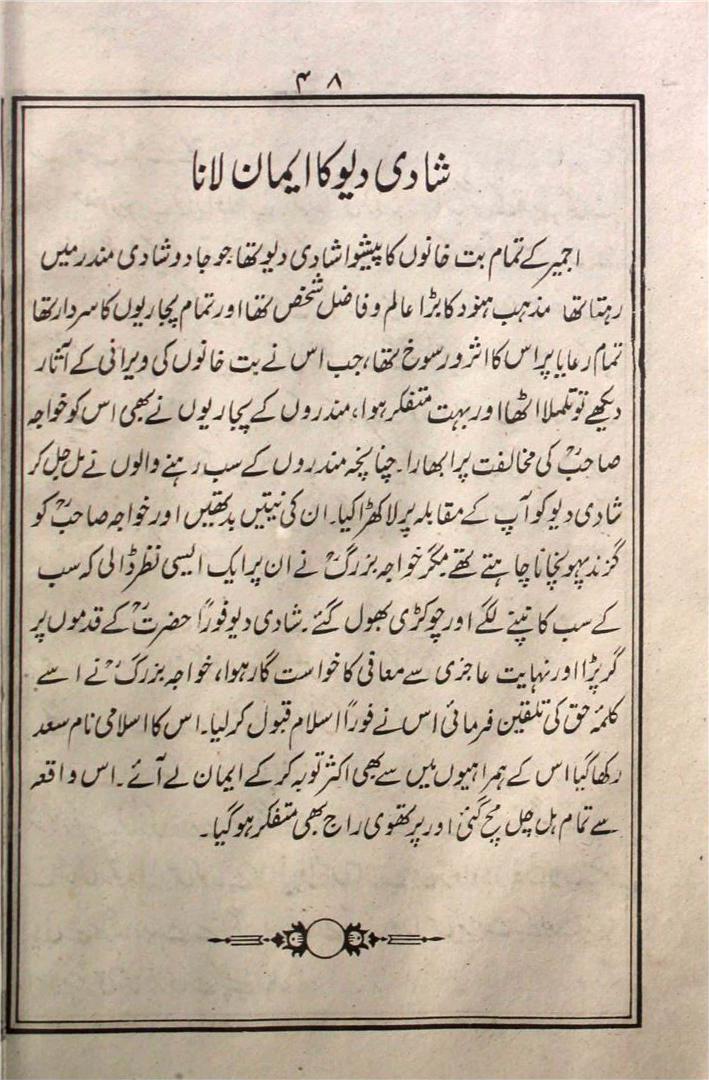 ۴۸
شادی دیو کا ایمان لانا
اجمیر کے تمام بت خانوں کا پیشوا شادی دیو تھا، جو جادو شادی مندر میں
رہتا تھا مذہب ہنود کا بڑا عالم و فاضل شخص تھا اور تمام پجاریوں کا سردار تھا
تمام رعایا پر اس کا اثر و رسوخ تھا، جب اس نے بت خانوں کی ویرانی کے آثار
دیکھے تو تلملا اٹھا اور بہت متفکر ہوا، مندروں کے پجاریوں نے بھی اس کو خواجہ
صاحبؒ کی مخالفت پر ابھارا۔ چنانچہ مندروں کے سب رہنے والوں نے مل جل کر
شادی دیو کو آپ کے مقابلہ پر لا کھڑا کیا۔ ان کی نیتیں بد تھیں اور خواجہ صاحبؒ کو
گزند پہونچانا چاہتے تھے مگر خواجہ بزرگؒ نے ان پر ایک ایسی نظر ڈالی کہ سب
کے سب کانپنے لگے اور چوکڑی بھول گئے۔ شادی دیو فوراً حضرتؒ کے قدموں پر
گر پڑا اور نہایت عاجزی سے معافی کا خواست گار ہوا، خواجہ بزرگؒ نے اسے
کلمۂ حق کی تلقین فرمائی اس نے فوراً اسلام قبول کر لیا۔ اس کا اسلامی نام سعد
رکھا گیا اس کے ہمراہیوں میں سے بھی اکثر توبہ کر کے ایمان لے آئے۔ اس واقعہ
سے تمام ہل چل مچ گئی اور پرتھوی راج بھی متفکر ہو گیا۔